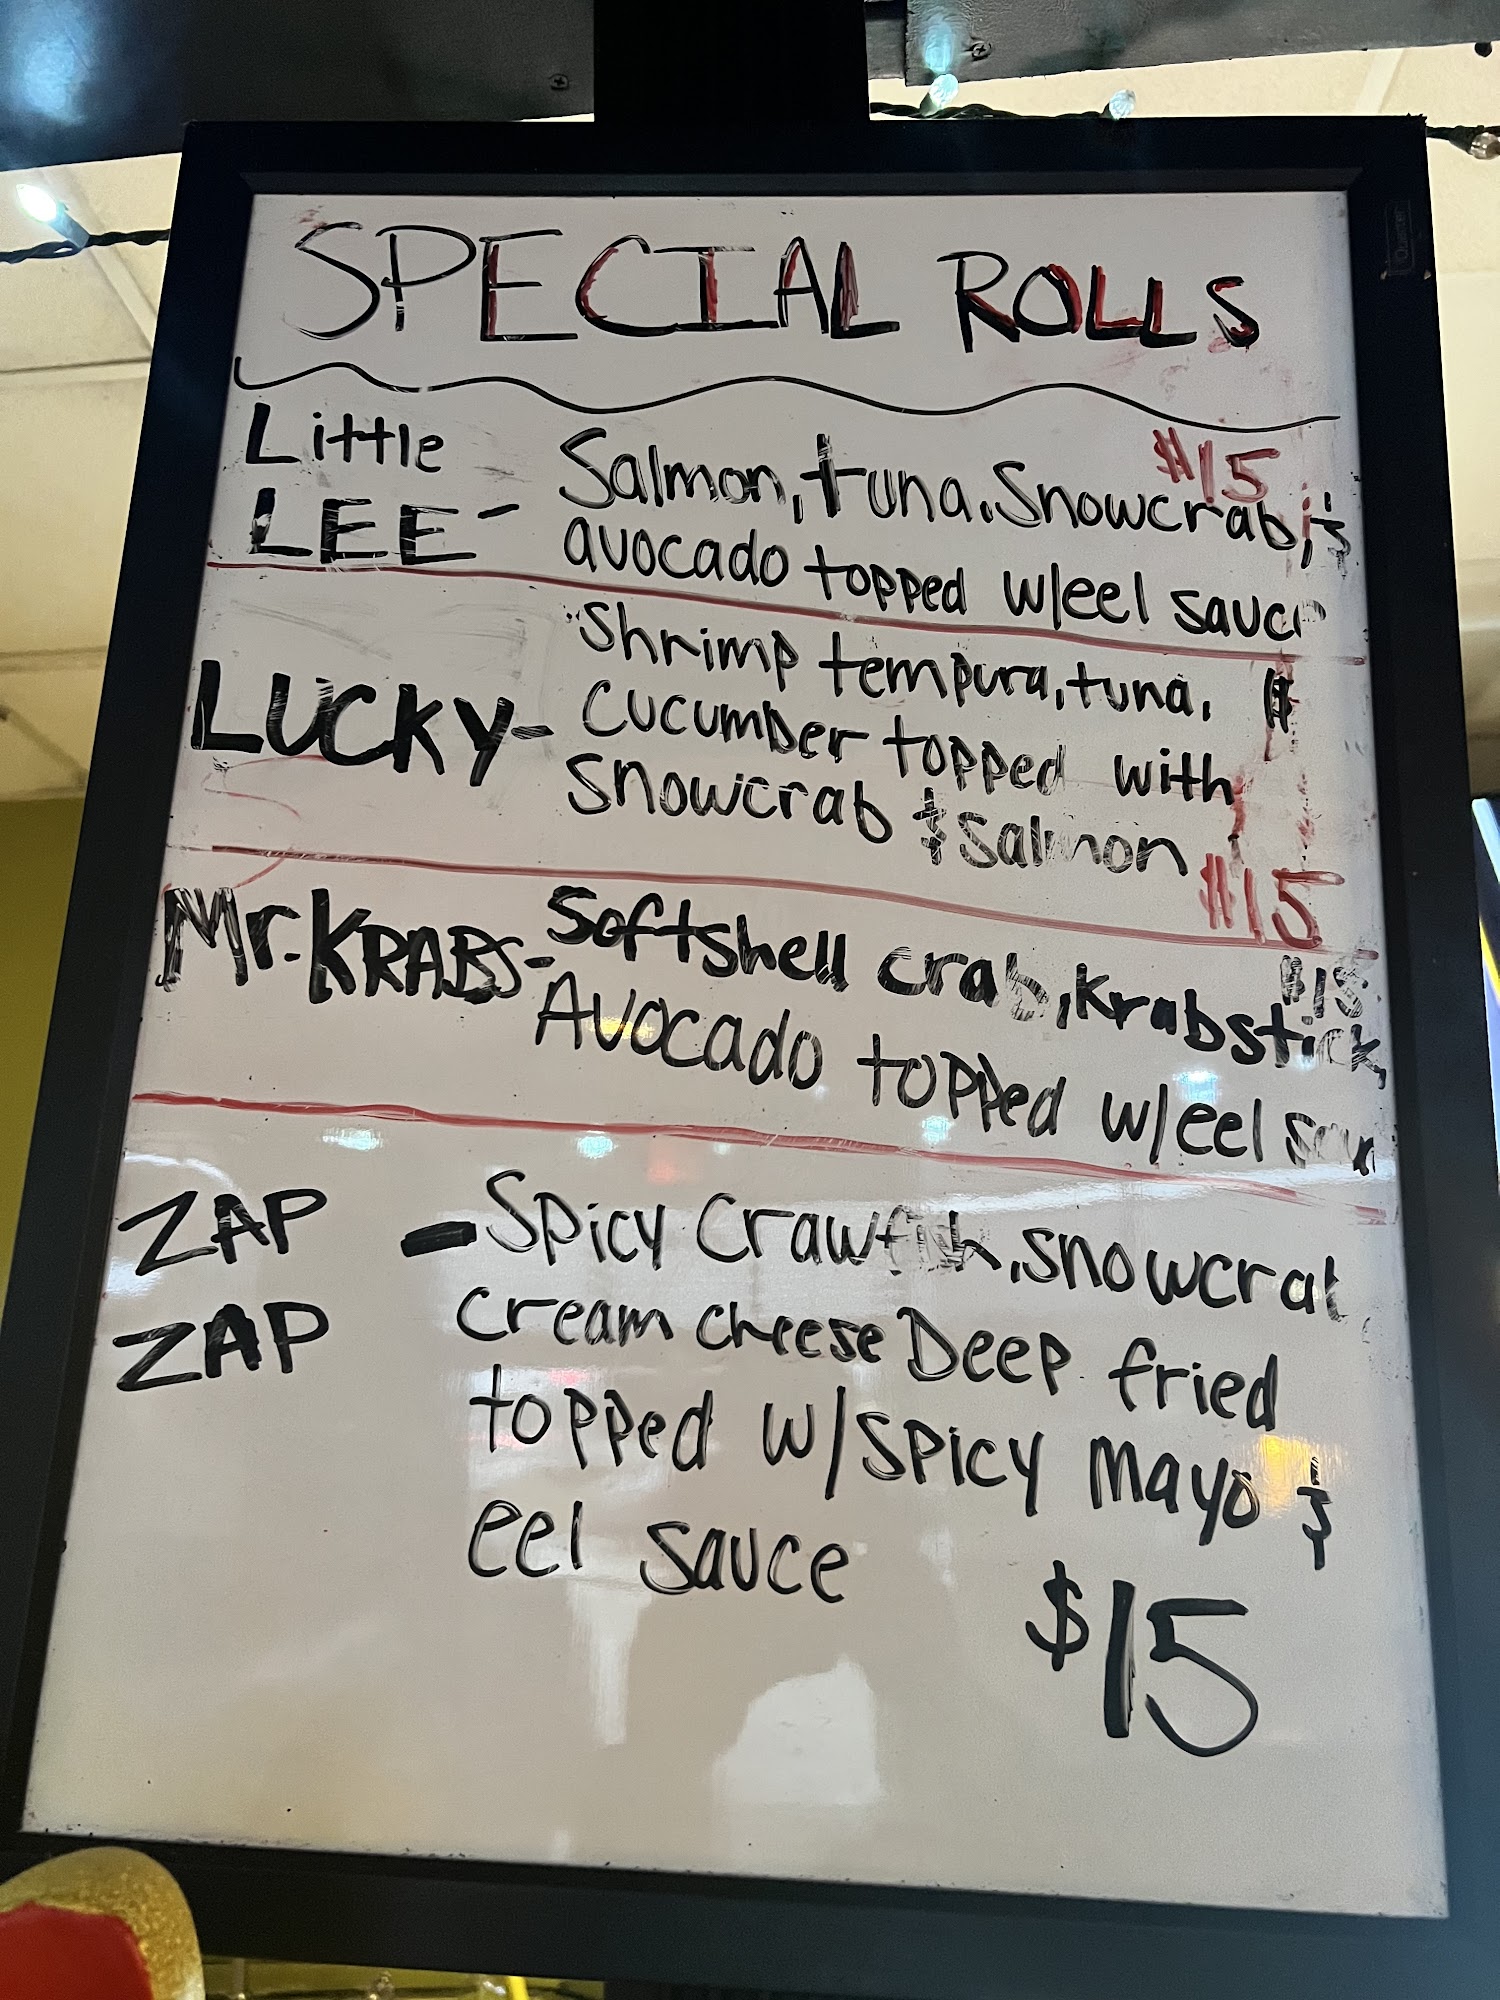 SPECIAL ROLLS
Little
LEE -
$15
Salmon, tuna, Snowcrab, &
avocado topped w/eel sauce
LUCKY -
Shrimp tempura, tuna,
cucumber topped with
Snowcrab & Salmon
$15
Mr. KRABS -
Softshell crab, Krabstick,
$15
Avocado topped w/eel sauce
ZAP
ZAP
- Spicy Crawfish, snowcrab
cream cheese Deep fried
topped w/spicy mayo &
eel sauce
$15